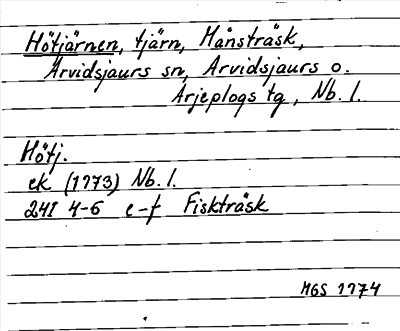 Hötjärnen, tjärn, Månsträsk,
Arvidsjaurs sn, Arvidsjaurs o.
Arjeplogs tg, Nb. l.
Hötj.
ek (1973) Nb. l.
24I 4-6 e-f Fiskträsk
MGS 1974